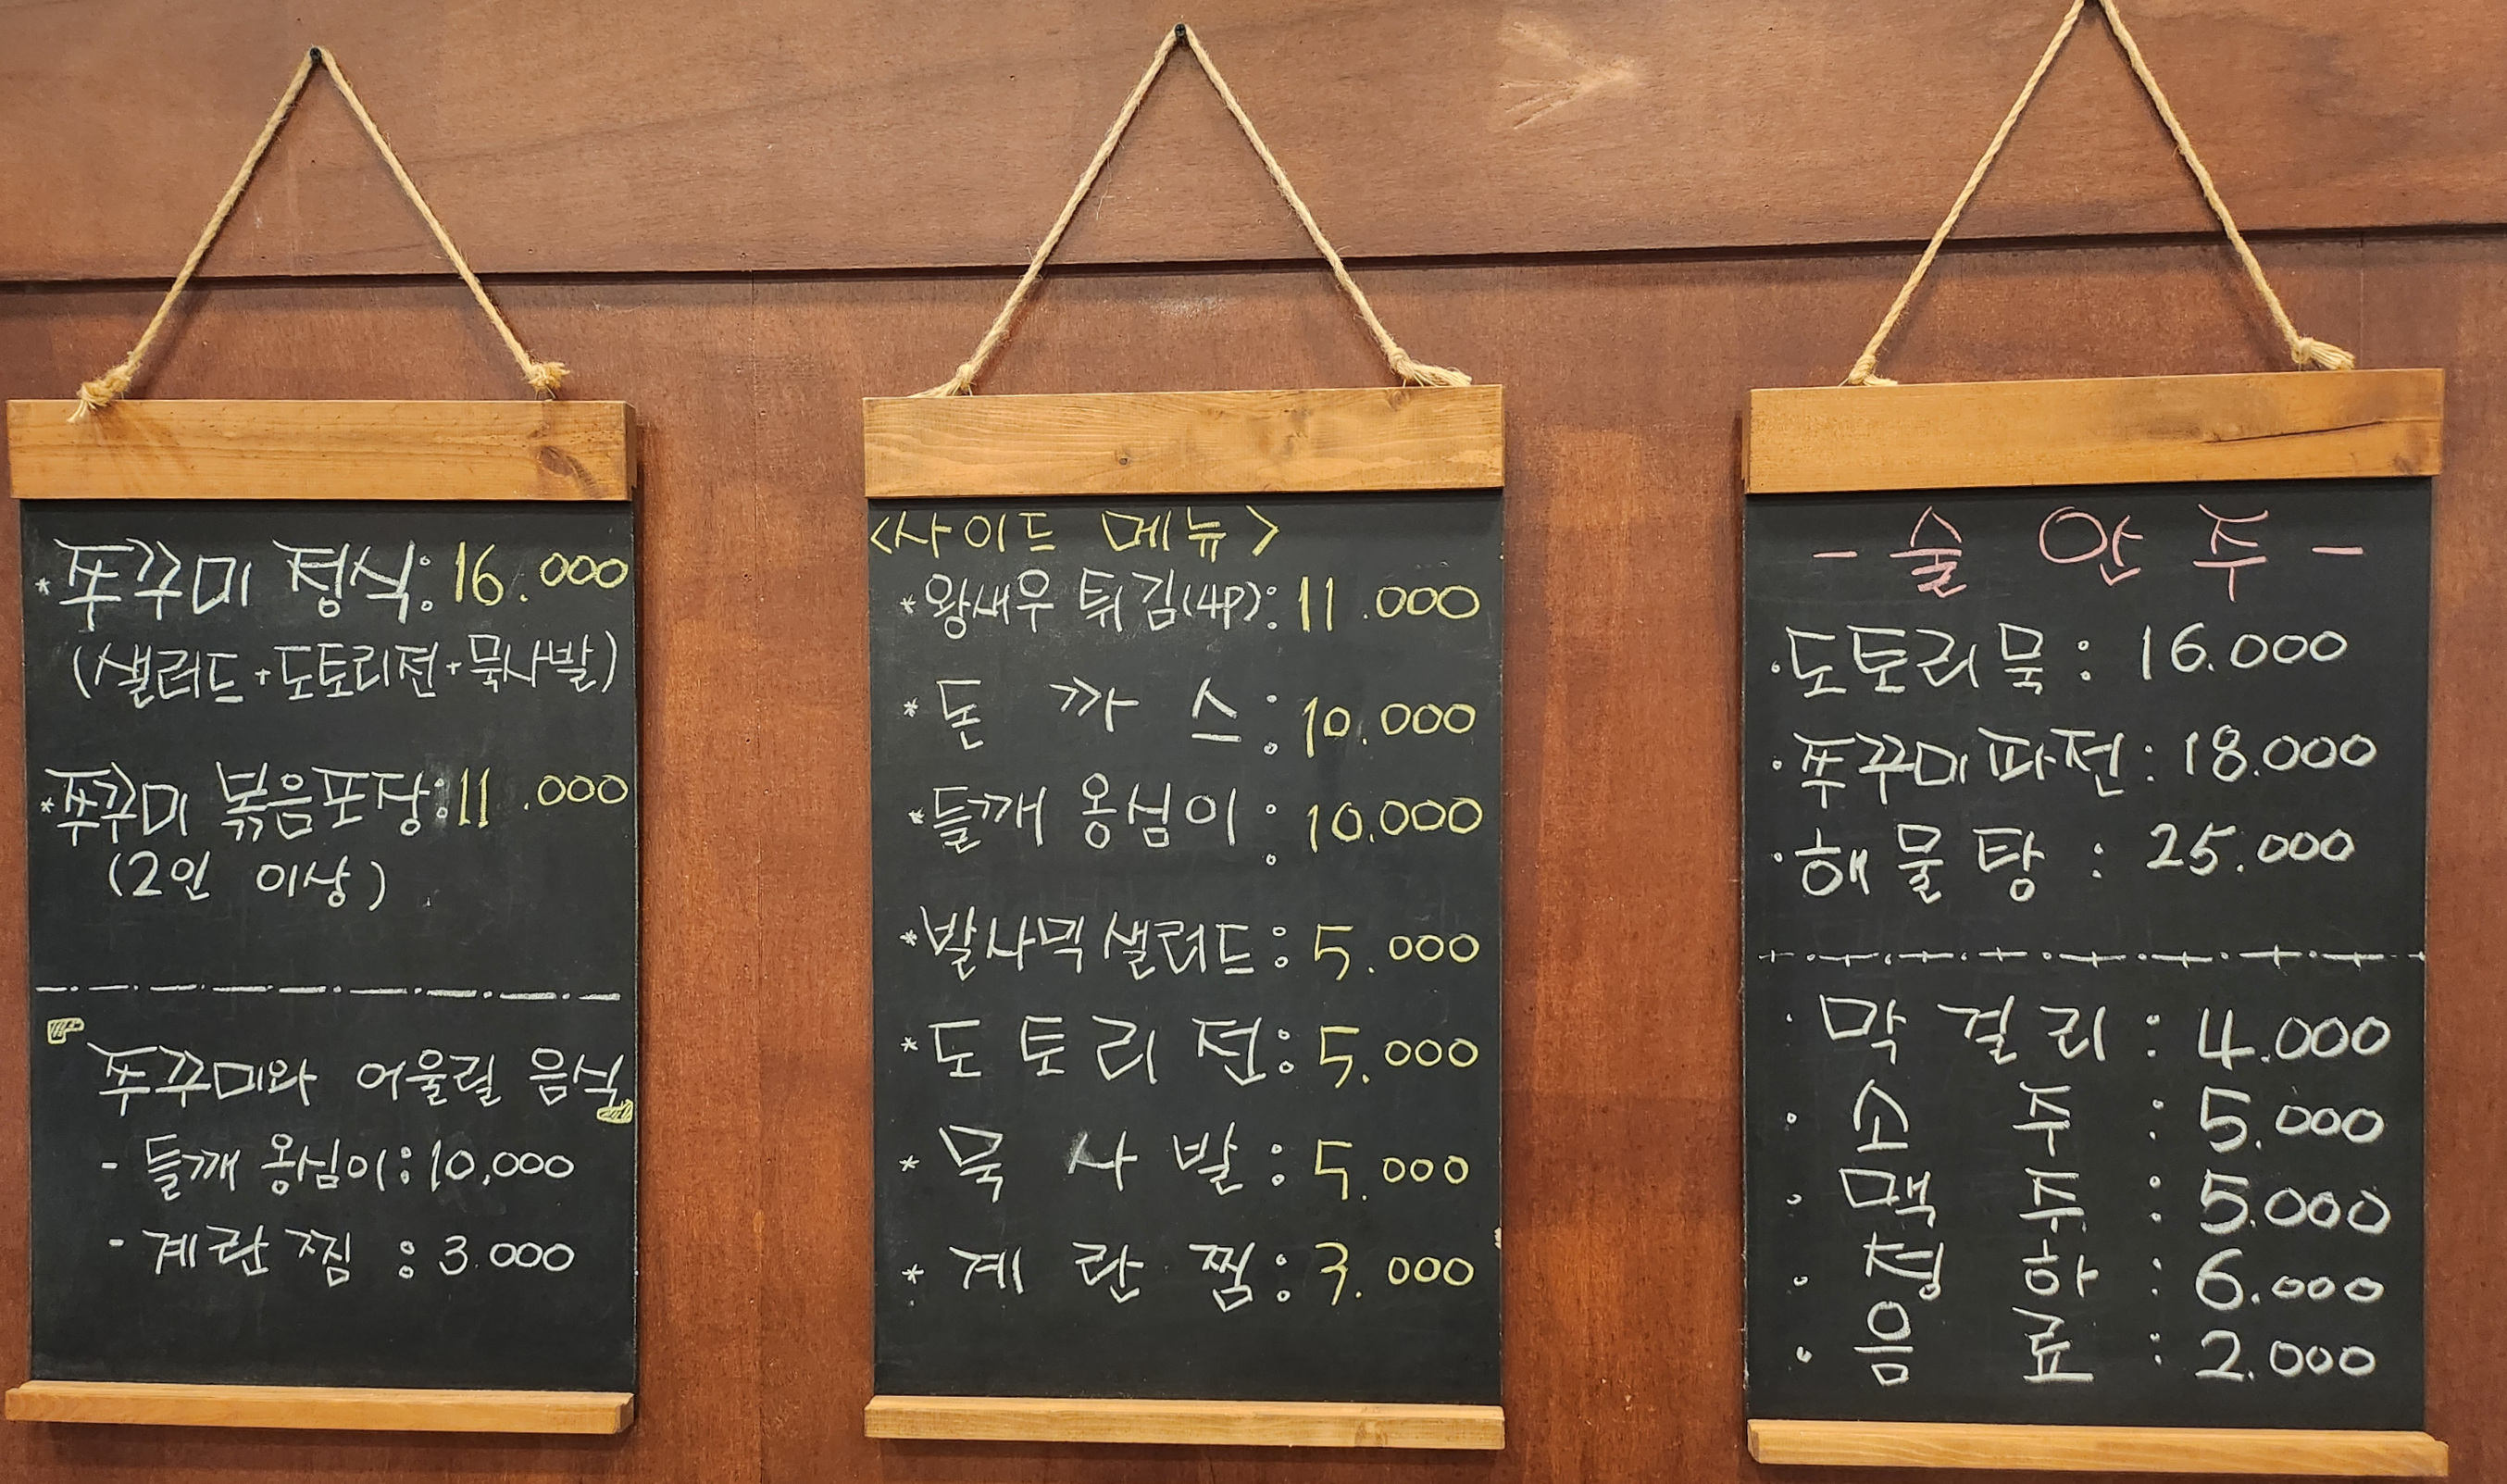 * 쭈꾸미 정식: 16.000
(샐러드+도토리전+묵사발)
* 쭈꾸미 볶음포장: 11.000
(2인 이상)
쭈꾸미와 어울릴 음식
- 들깨 옹심이: 10,000
- 계란찜 : 3.000
<사이드 메뉴>
* 왕새우 튀김(4P): 11.000
* 돈까스: 10.000
* 들깨 옹심이: 10.000
* 발사믹샐러드: 5.000
* 도토리전: 5.000
* 묵사발: 5.000
* 계란찜: 3.000
- 술안주 -
· 도토리묵: 16.000
· 쭈꾸미파전: 18.000
· 해물탕: 25.000
· 막걸리: 4.000
· 소주: 5.000
· 맥주: 5.000
· 청하: 6.000
· 음료: 2.000